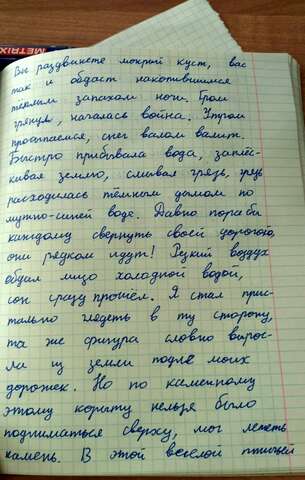 METRIX
Вы раздвинете мокрый куст, вас
так и обдаст накопившимся
тёплым запахом ночи. Гром
грянул, началась война. Утром
просыпаемся, снег валом валит.
Быстро прибывала вода, заплёс-
кивая землю, смывая грязь, грязь
расходилась тёмным дымом по
мутно-синей воде. Давно пора бы
каждому свернуть своей дорогою,
они рядком идут! Резкий воздух
обдал лицо холодной водой,
сон сразу прошёл. Я стал прис-
тально глядеть в ту сторону,
та же фигура словно вырос-
ла из земли подле моих
дорожек. Но по каменному
этому корыту нельзя было
подниматься сверху, мог лететь
камень. В этой веселой птичьей